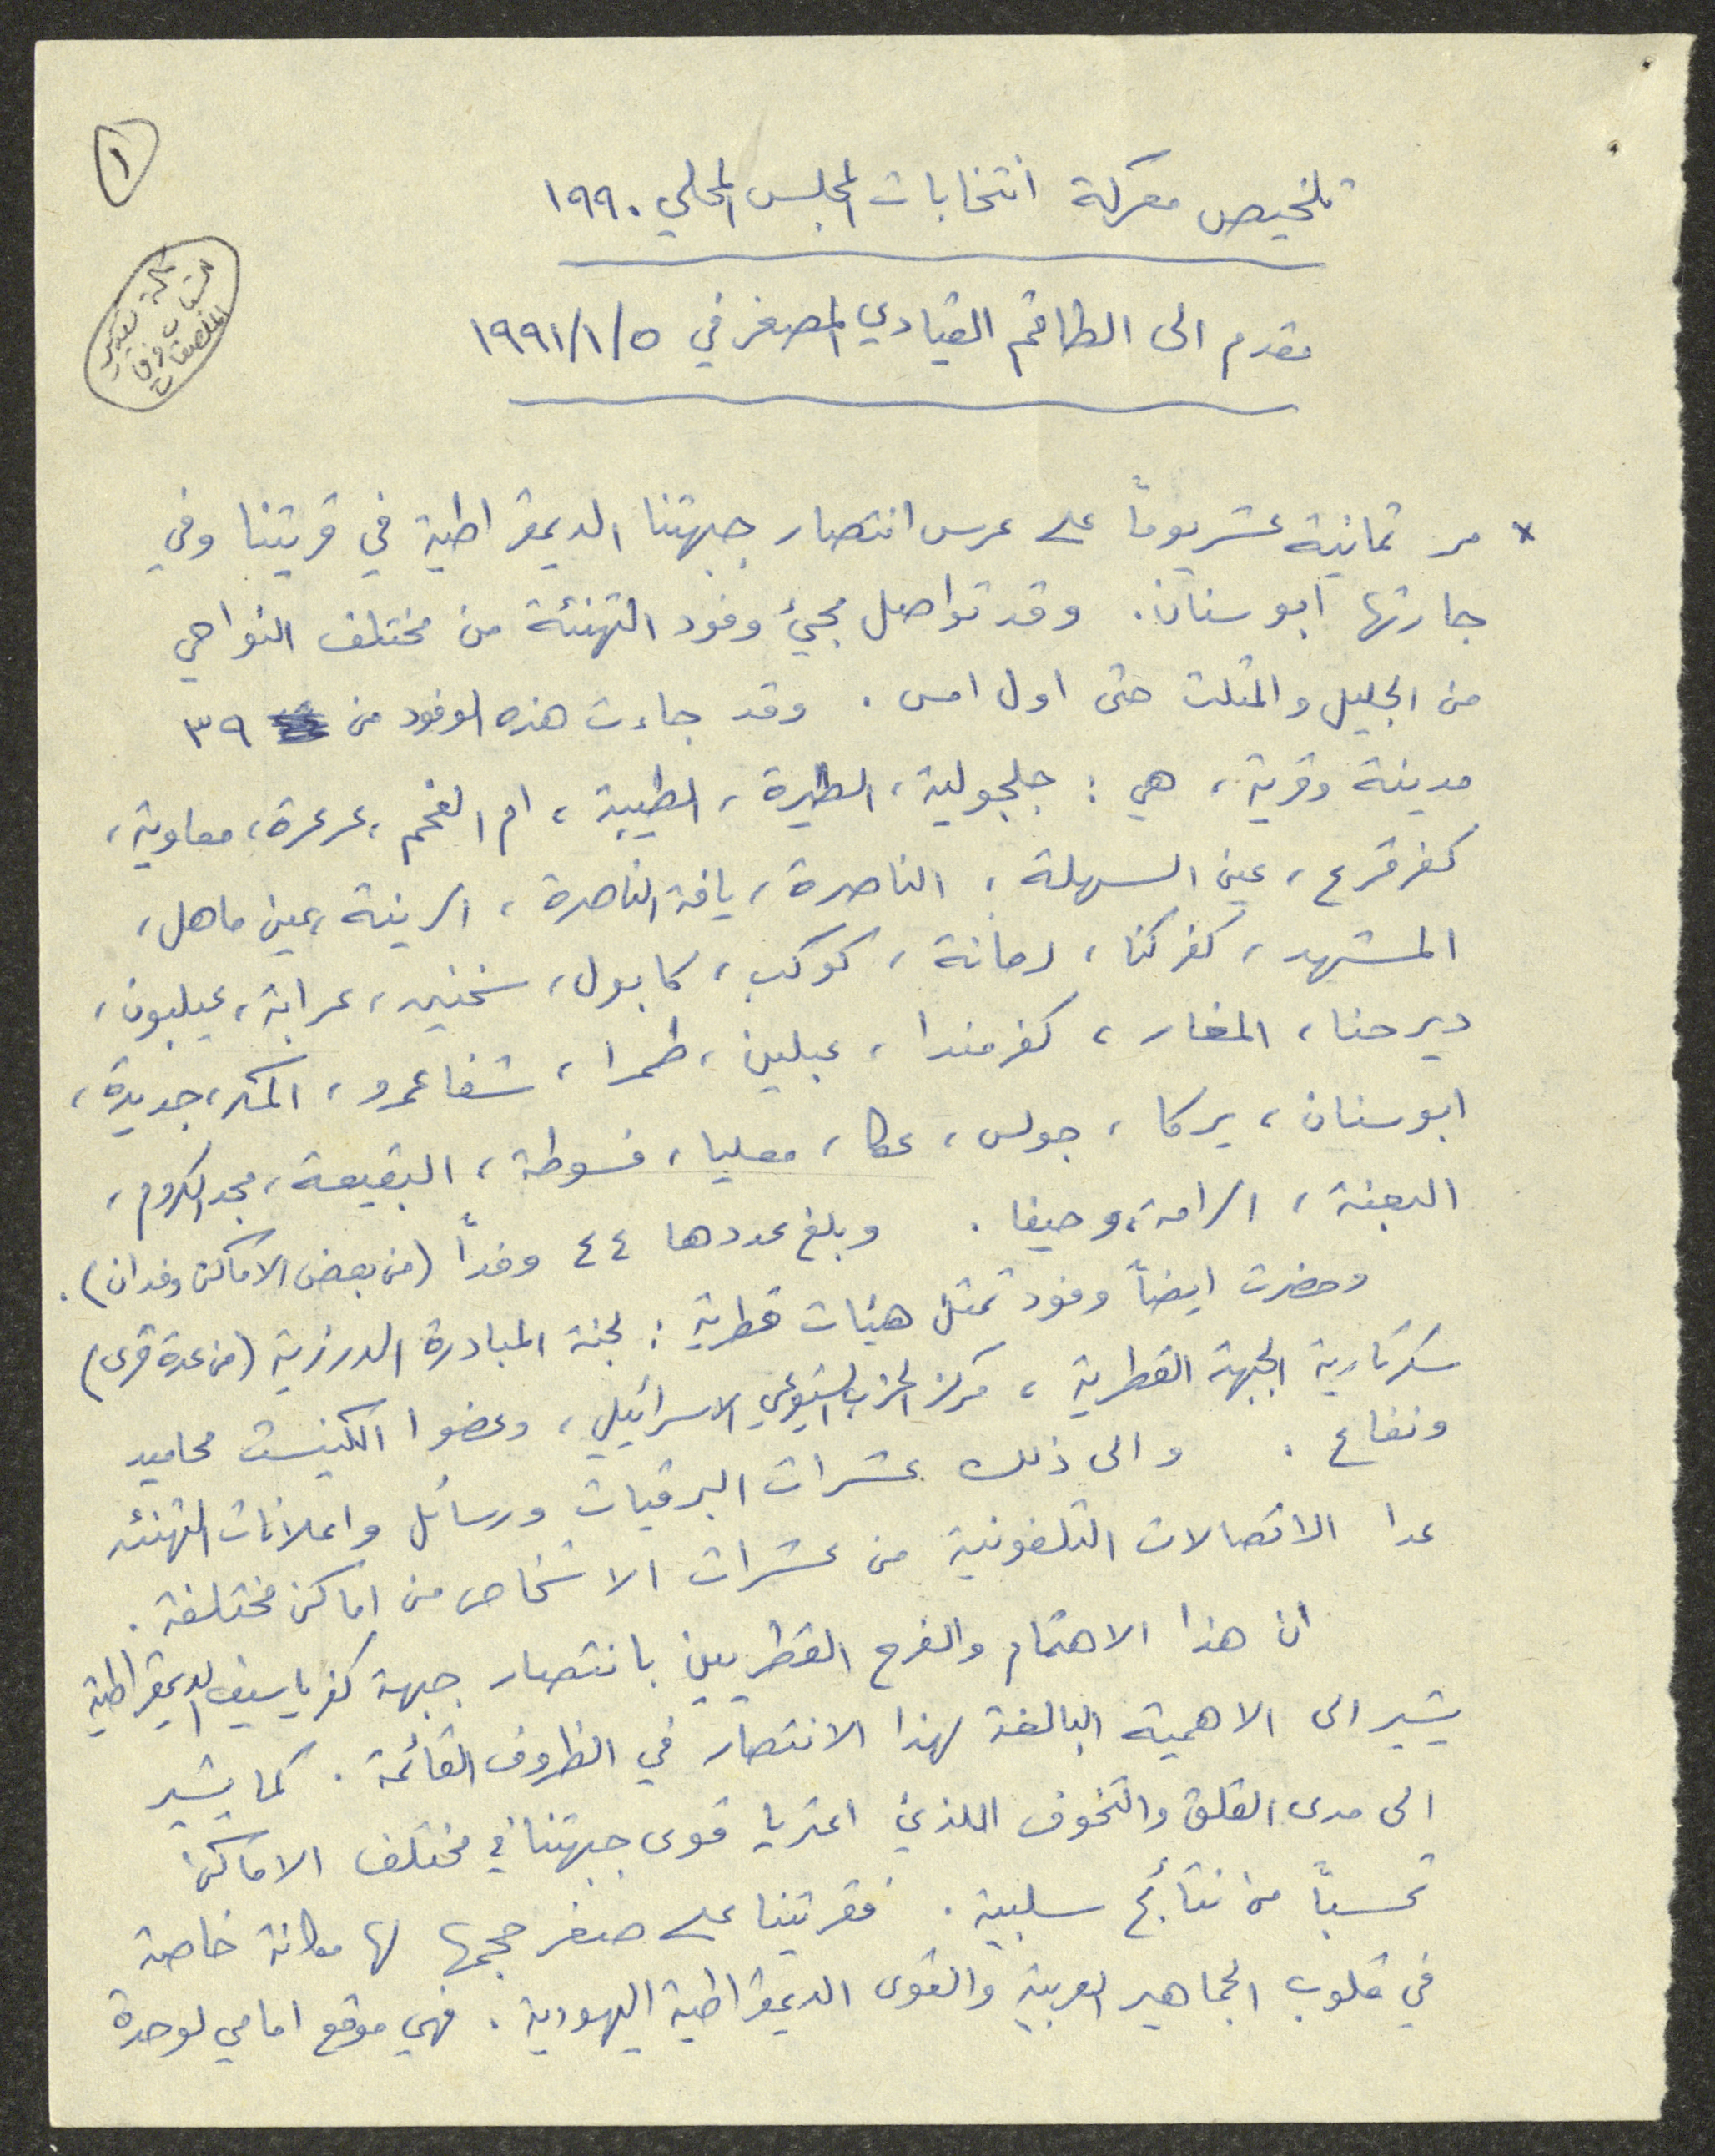 ١
تلخيص معركة انتخابات المجلس المحلي ١٩٩٠
مقدم الى الطاقم القيادي المصغر في ١٩٩١/١/٥
* مر ثمانية عشر يوماً على عرس انتصار جبهتنا الديمقراطية في قريتنا وفي
جارتها ابو سنان. وقد تواصل مجيء وفود التهنئة من مختلف النواحي
من الجليل والمثلث حتى اول امس. وقد جاءت هذه الوفود من ٣٩
مدينة وقرية، هي: جلجولية، الطيرة، الطيبة، ام الفحم، عرعرة، معاوية،
كفر قرع، عين السهلة، الناصرة، يافة الناصرة، الرينة، عين ماهل،
المشهد، كفركنا، رمانة، كوكب، كابول، سخنين، عرابة، عيلبون،
دير حنا، المغار، كفر مندا، عبلين، طمرا، شفاعمرو، المكر، جديدة،
ابو سنان، يركا، جولس، عكا، معليا، فسوطة، البقيعة، مجد الكروم،
البعنة، الرامة، وحيفا. وبلغ عددها ٤٤ وفداً (من بعض الاماكن وفدان).
وحضرت ايضاً وفود تمثل هيئات قطرية: لجنة المبادرة الدرزية (من عدة قرى)
سكرتارية الجبهة القطرية، مركز الحزب الشيوعي الاسرائيلي، وعضوا الكنيست محاميد
ونفاع. والى ذلك عشرات البرقيات ورسائل واعلانات التهنئه
عدا الاتصالات التلفونية من عشرات الاشخاص من اماكن مختلفة.
ان هذا الاهتمام والفرح القطريين بانتصار جبهة كفرياسيف الديمقراطية
يشير الى الاهمية البالغة لهذا الانتصار في الظروف القائمة. كما يشير
الى مدى القلق والتخوف اللذين اعتريا قوى جبهتنا في مختلف الاماكن
تحسباً من نتائج سلبية. فقريتنا على صغر حجمها لها مكانة خاصة
في قلوب الجماهير العربية والقوى الديمقراطية اليهودية. فهي موقع امامي لوحدة